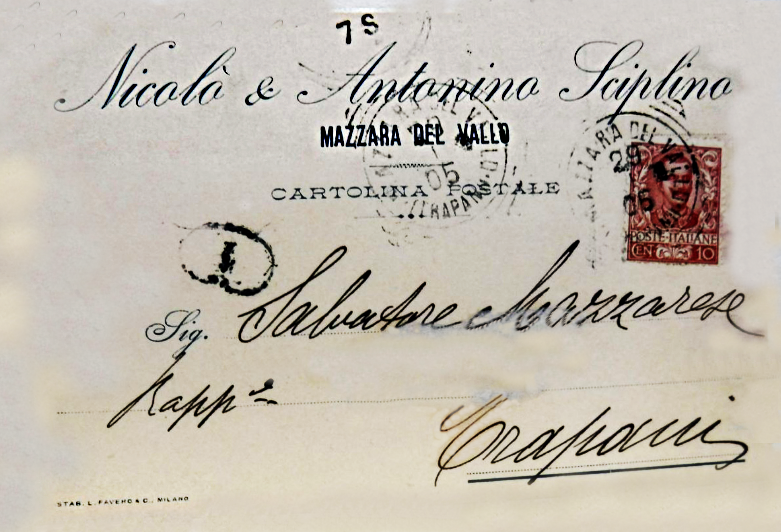 7S
Nicolò & Antonino Sciplino
MAZZARA DEL VALLO
CARTOLINA POSTALE
MAZZARA DEL VALLO
05
(TRAPANI)
MAZZARA DEL VALLO
29
05
POSTE·ITALIANE
CEN 10
1
Sig. Salvatore Mazzarese
Rapp.e
Trapani
STAB. L. FAVERO & C., MILANO